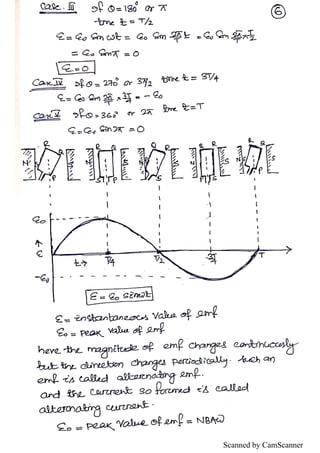 6
Case. III If θ = 180° or π
time t = T/2
ε = ε₀ Sin ωt = ε₀ Sin 2π/T t = ε₀ Sin 2π/T × T/2
= ε₀ Sin π = 0
ε = 0
Case IV If θ = 270° or 3π/2 time t = 3T/4
ε = ε₀ Sin 2π/T × 3T/4 = - ε₀
Case V If θ = 360° or 2π time t = T
ε = ε₀ Sin 2π = 0
ε₀
ε
t→ T/4 T/2 3T/4 T
-ε₀
ε = ε₀ Sin ωt
ε = instantaneous Value of emf
ε₀ = peak Value of emf
here the magnitude of emf changes continuously
but the direction changes periodically. such an
emf is called alternating emf.
and the current so formed is called
alternating current.
ε₀ = peak value of emf = NBAω
Scanned by CamScanner